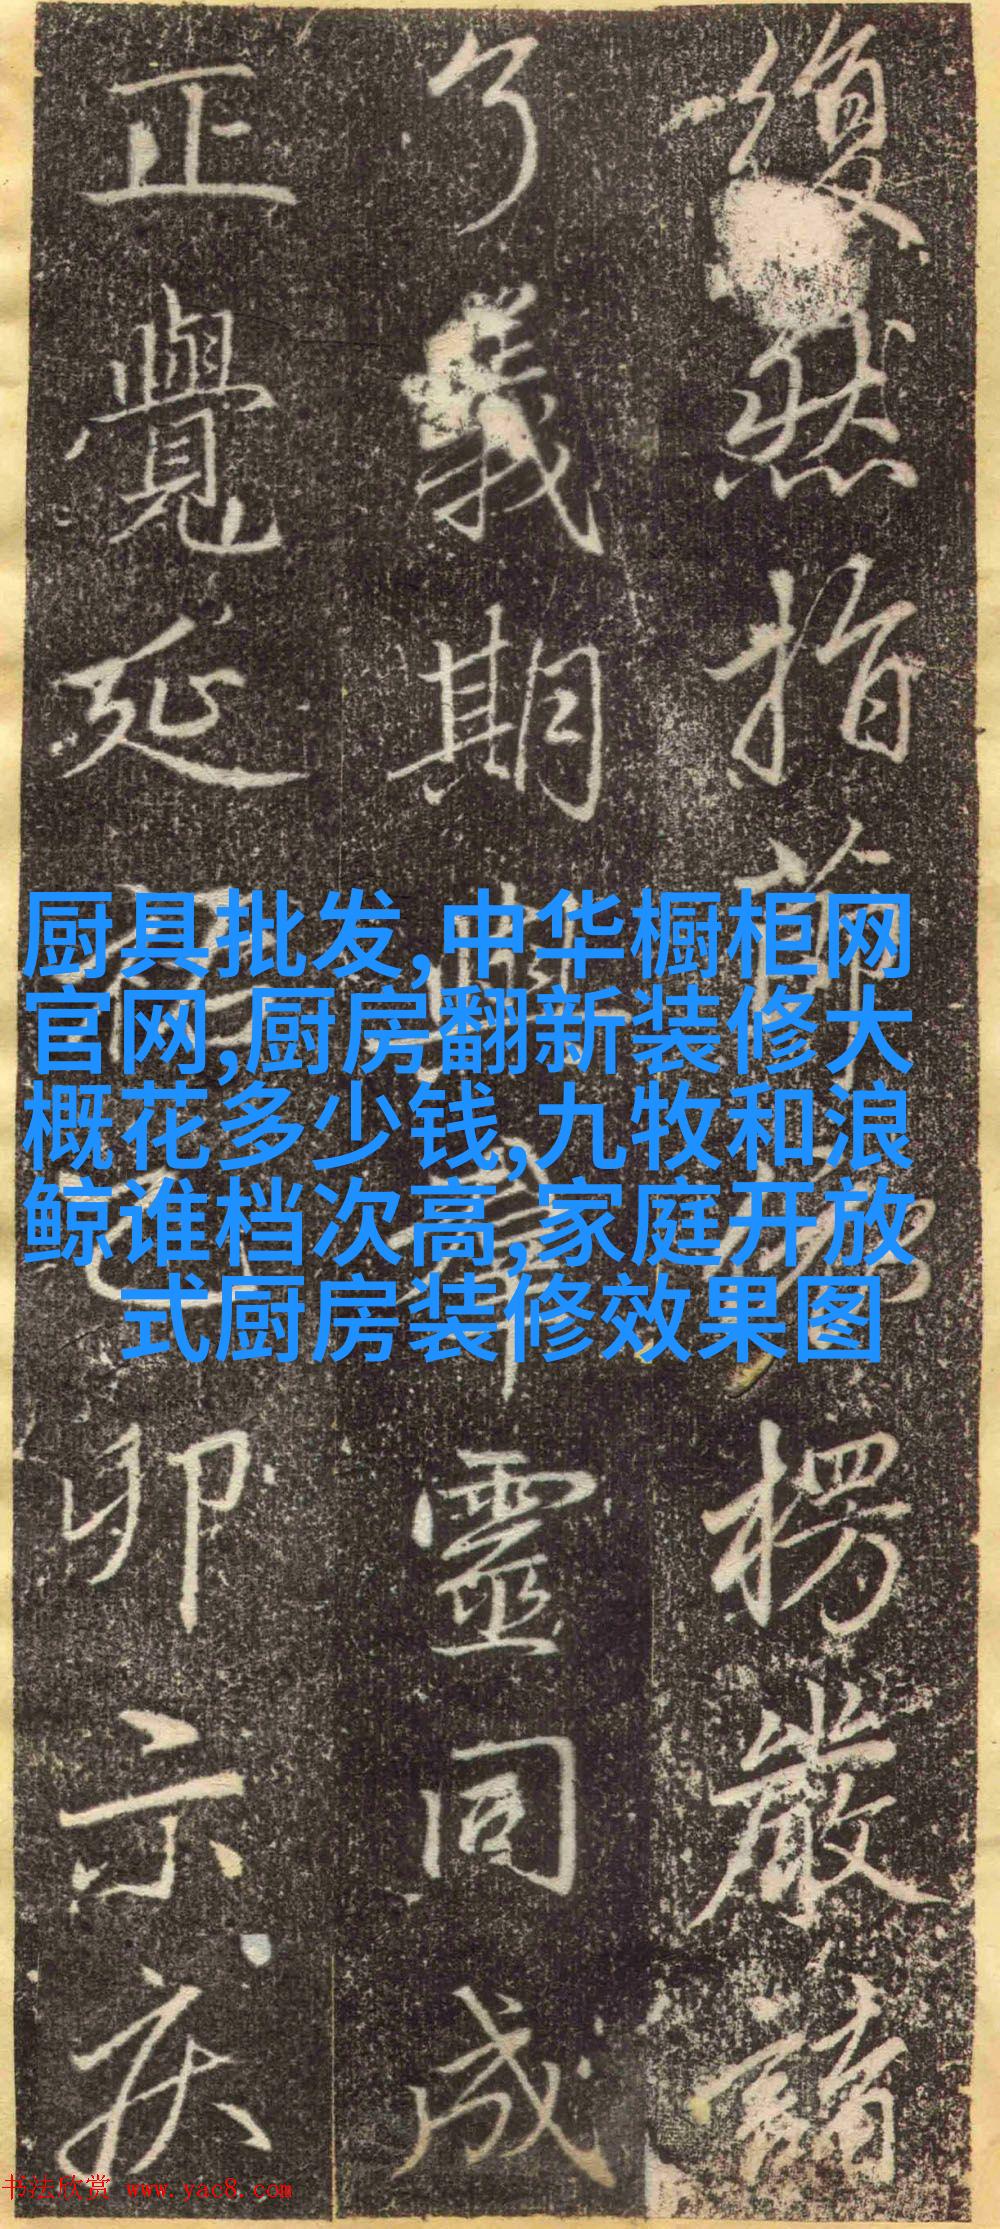 復然指楞嚴
了義期與羣靈同成
正覺延卯示疾
厨具批发,中华橱柜网
官网,厨房翻新装修大
概花多少钱,九牧和浪
鲸谁档次高,家庭开放
式厨房装修效果图
书法欣赏 www.yac8.com